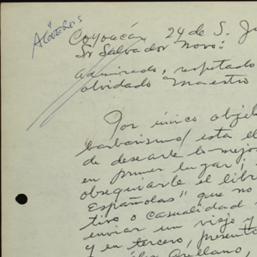 AGÜEROS
Coyoacán, 24 de S. Ju
Sr Salvador Novo:
Admirado, respetado
olvidado Maestro
Por único obje
barbarismo/ esta el
de desearle lo mejor
en primer lugar;
obsequiarle el libr
Españolas" que no
tivo o casualidad
enviar un viejo y
y en tercero, present
Arellano,